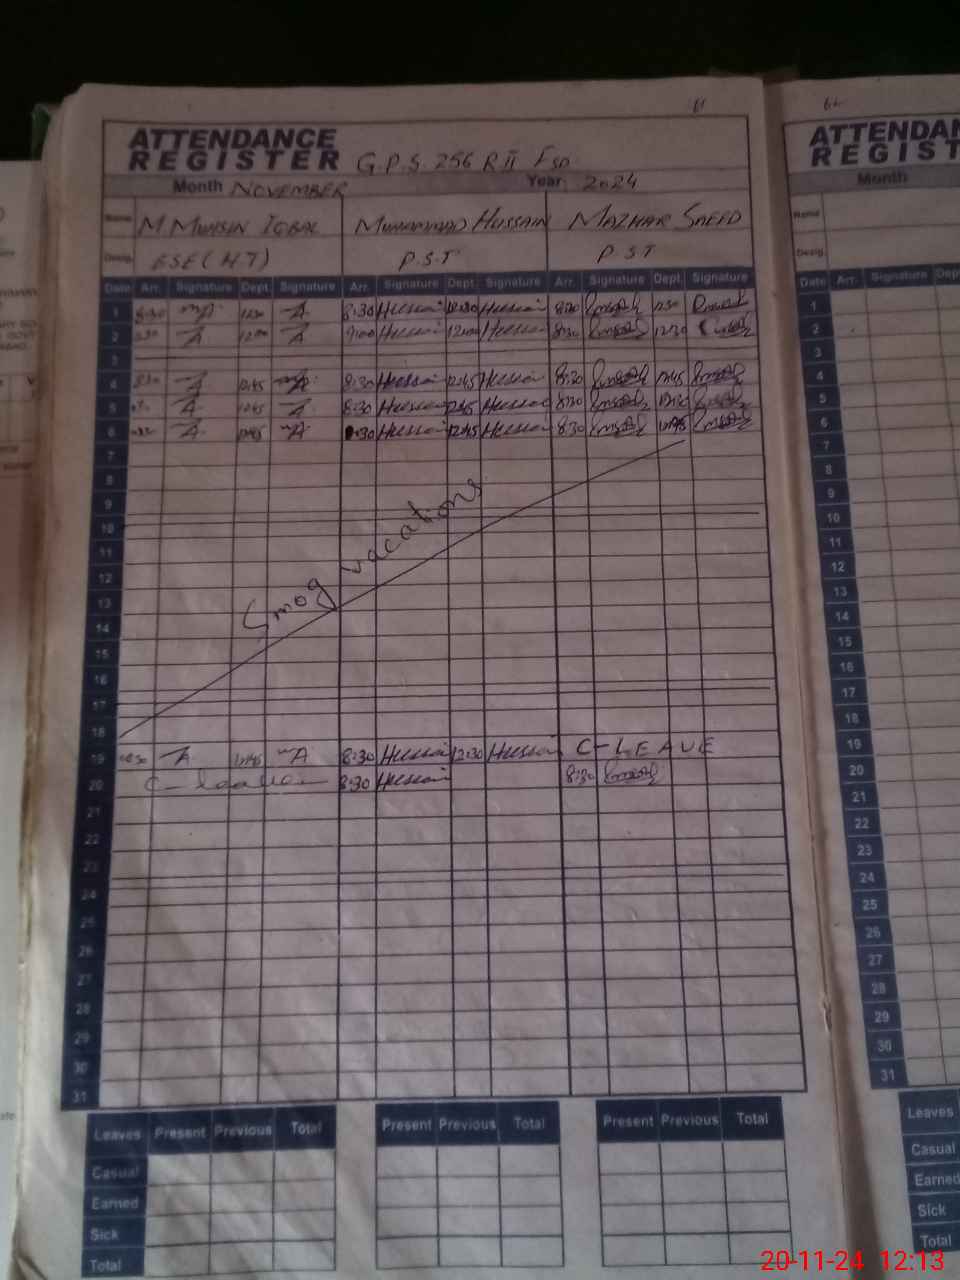 61
ATTENDANCE
REGISTER G.P.S. 256 R.B FSD
Month NOVEMBER Year 2024
Name M. MUHSIN IQBAL MUHAMMAD HUSSAIN MAZHAR SAEED
Desig. ESE (HT) P.S.T P.S.T
Date Arr. Signature Dept. Signature Arr. Signature Dept. Signature Arr. Signature Dept. Signature
1 8:30 8:30 Hussain 12:30 Hussain 8:30 12:30
2 12:00 9:00 Hussain 12:00 Hussain 8:30 12:30
3
4 8:30 12:45 8:30 Hussain 12:45 Hussain 8:30 12:45
5 12:45 8:30 Hussain 12:45 Hussain 8:30
6 12:45 8:30 Hussain 12:45 Hussain 8:30 12:45
7
8
9
10
11
12
13
14
15
16
17
18
Smog vacations
19 12:45 8:30 Hussain 12:30 Hussain C-LEAVE
20 8:30 Hussain 8:30
21
22
23
24
25
26
27
28
29
30
31
Leaves Present Previous Total Present Previous Total Present Previous Total
Casual
Earned
Sick
Total
62
ATTENDAN
REGIST
Month
Name
Desig.
Date Arr. Signature Dep
1
2
3
4
5
6
7
8
9
10
11
12
13
14
15
16
17
18
19
20
21
22
23
24
25
26
27
28
29
30
31
Leaves
Casual
Earned
Sick
Total
20-11-24 12:13